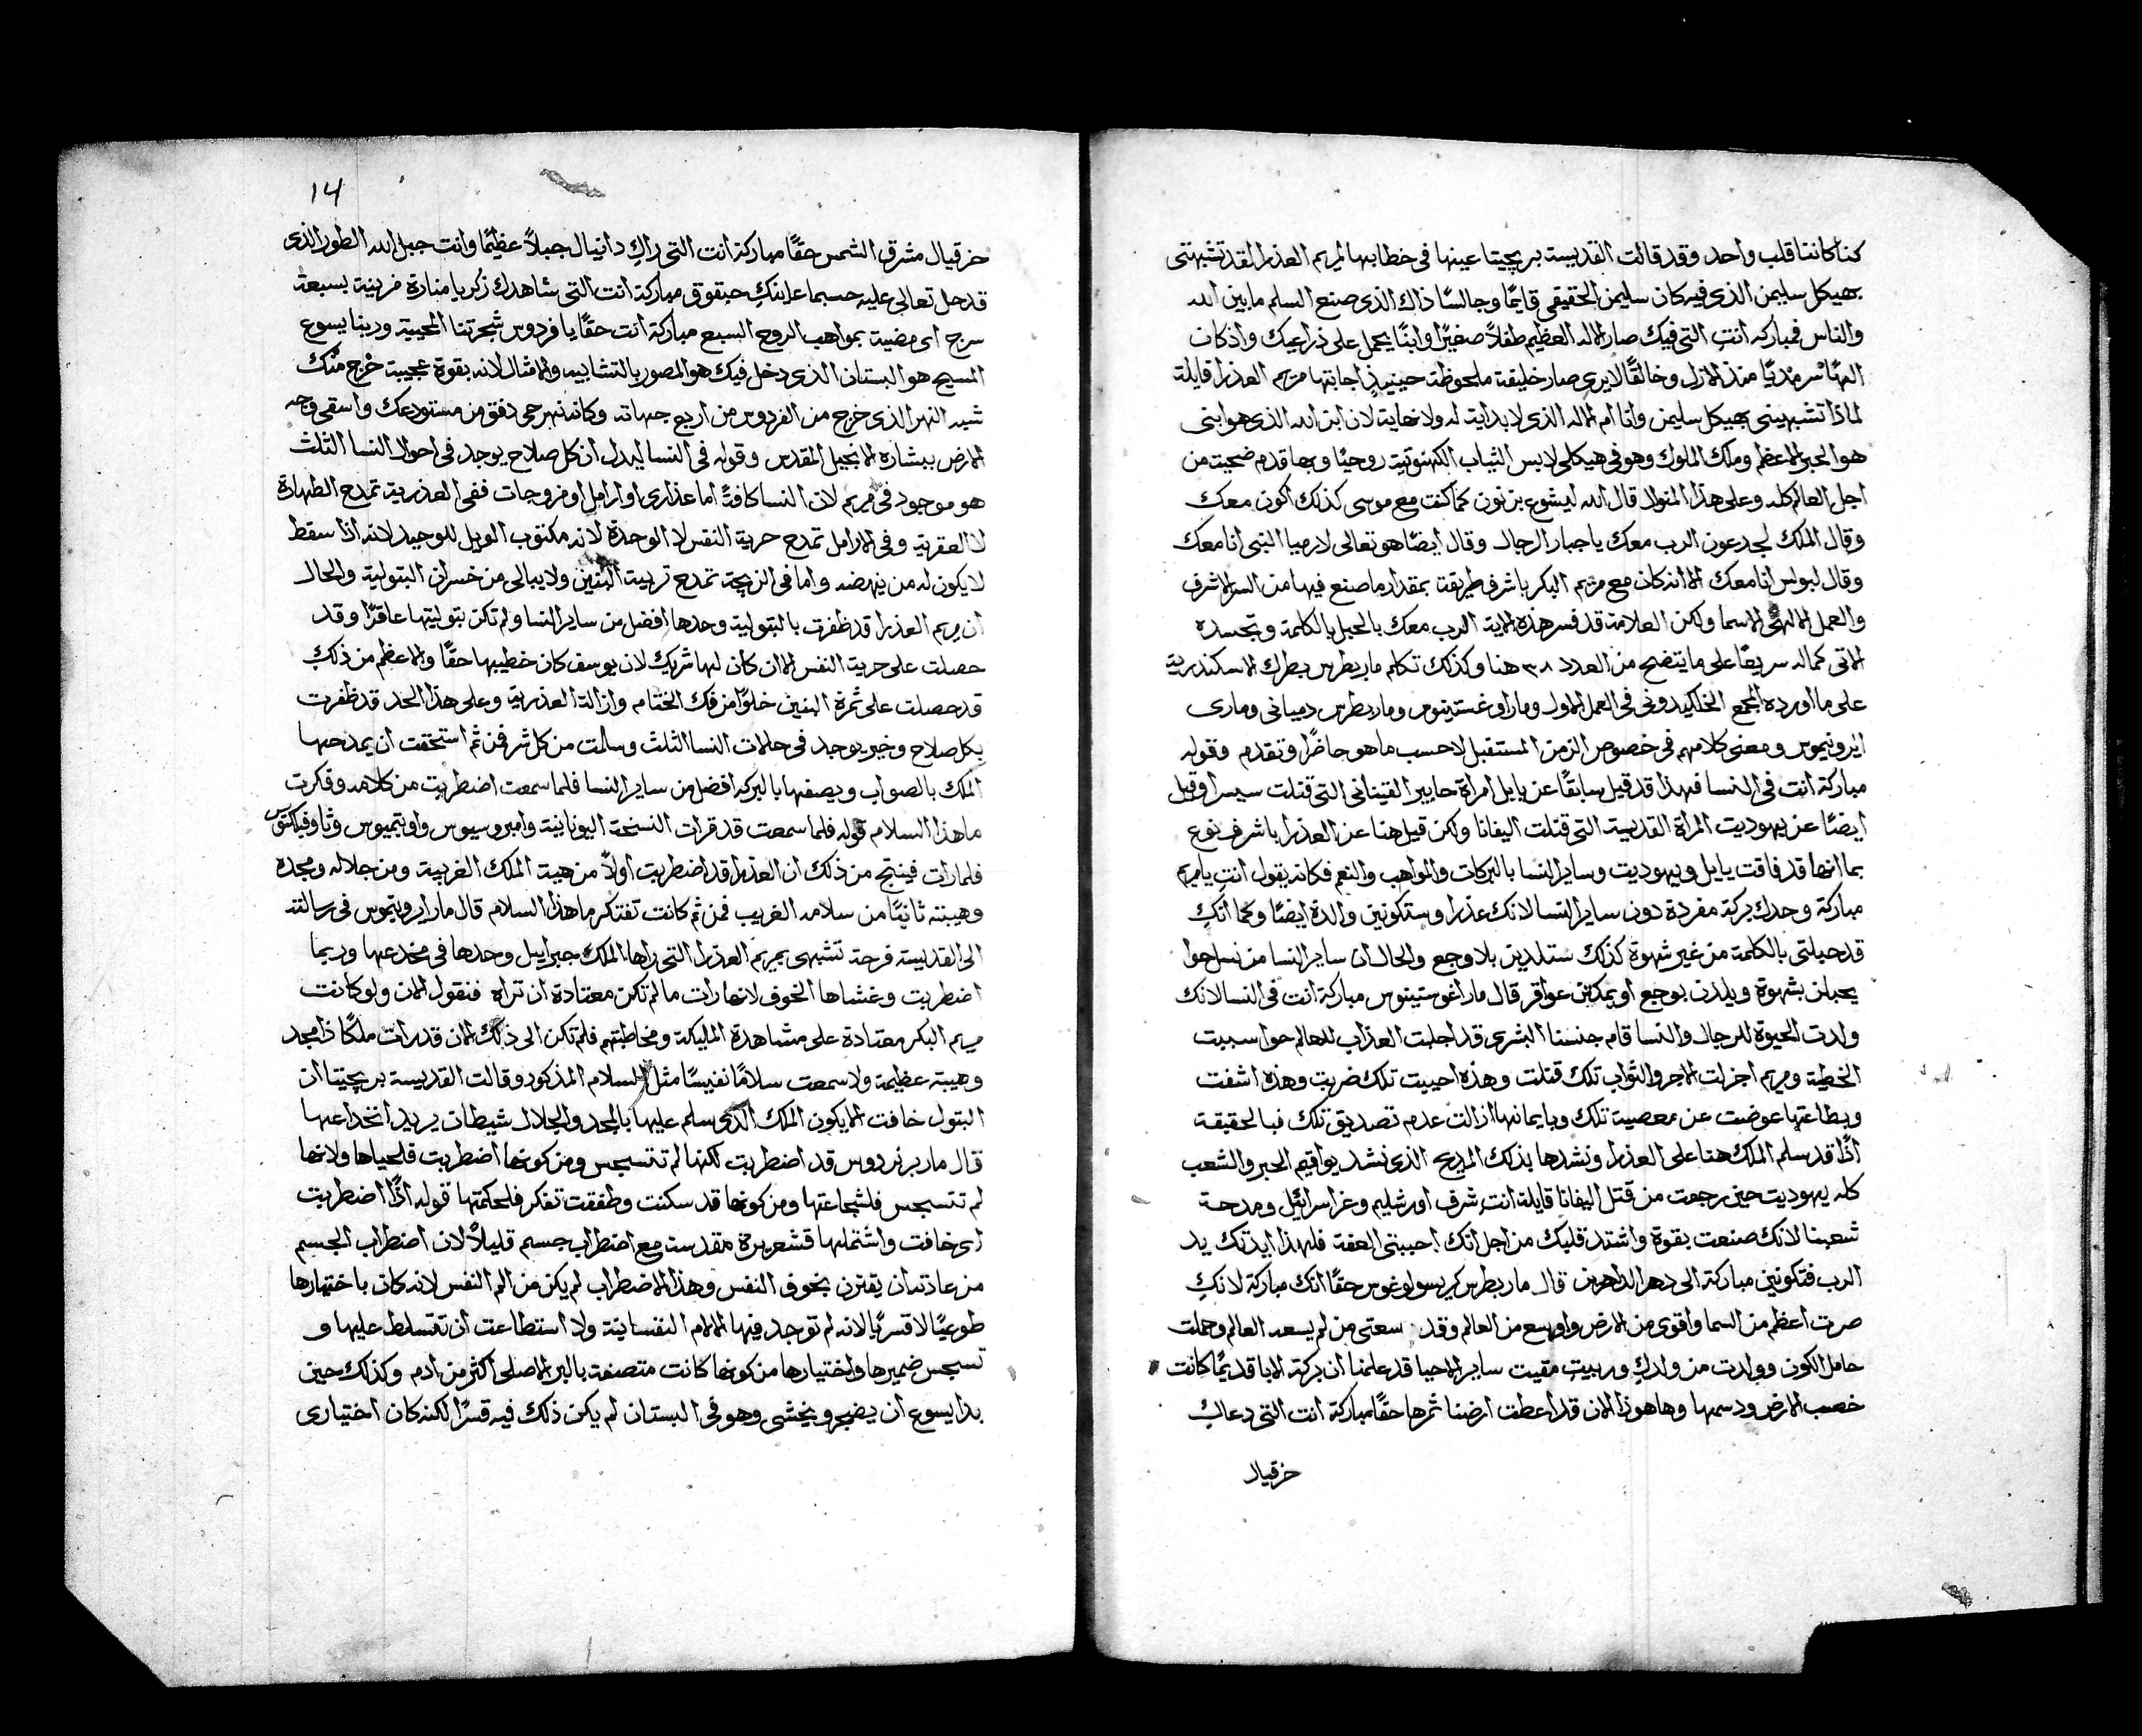 كنا كاننا قلب واحد وقد قالت القديسة بريجيتا عينها فى خطابها لمريم العذرا لقد تشبهتى
بهيكل سليمن الذى فيه كان سليمن الحقيقى قايمًا وجالسًا ذاك الذى صنع السلم ما بين الله
والناس فمباركه انتِ التى فيك صار الاله العظيم طفلاً صغيرًا وابنًا يحمل على ذراعيك واذ كان
الهًا سرمديًا منذ الازل وخالقًا لا يرى صار خليقة ملحوظة حينيذٍ اجابتها مريم العذرا قايلة
لماذا تشبهينى بهيكل سليمن وانا ام الاله الذى لا بداية له ولا نهاية لان ابن الله الذى هو ابنى
هو الحبر الاعظم وملك الملوك وهو فى هيكلى لابس الثياب الكهنوتية روحيًا وبها قدم ضحيت من
اجل العالم كله وعلى هذا المنوال قال الله ليشوع بن نون كما كنت مع موسى كذلك اكون معك
وقال الملك لجدعون الرب معك يا جبار الرجال وقال ايضًا هو تعالى لارميا النبى انا معك
وقال لبولس انا معك الا انه كان مع مريم البكر باشرف طريقة بمقدار ما صنع فيها من السر الاشرف
والعمل الالهى الاسما ولكن العلامة قد فسر هذه الاية الرب معك بالحبل بالكلمة وتجسده
الاتى كماله سريعًا على ما يتضح من العدد ٣٨ هنا وكذلك تكلم مار بطرس بطرك الاسكندرية
على ما اورده المجمع الخلكيدونى فى العمل الاول ومار اوغستينوس ومار بطرس دميانى ومارى
ايرونيموس ومعنى كلامهم فى خصوص الزمن المستقبل لا حسب ما هو حاضرًا وتقدم وقوله
مباركة انت فى النسا فهذا قد قيل سابقًا عن يايل امراة حابير القينانى التى قتلت سيسرا وقيل
ايضًا عن يهوديت المراة القديسة التى قتلت اليفانا ولكن قيل هنا عن العذرا باشرف نوع
بما انها قد فاقت يايل ويهوديت وساير النسا بالبركات والمواهب والنعم فكانه يقول انتِ يا مريم
مباركة وحدك بركة مفردة دون ساير النسا لانك عذرا وستكونين والدة ايضًا وكما انكِ
قد حبلتى بالكلمة من غير شهوة كذلك ستلدين بلا وجع والحال ان ساير النسا من نسل حوا
يحبلن بشهوة ويلدن بوجع او يمكثن عواقر قال مار اغوستينوس مباركة انت فى النسا لانك
ولدت الحيوة للرجال والنسا فام جنسنا البشرى قد اجلبت العذاب للعالم حوا سببت
الخطية ومريم اجزلت الاجر والثواب تلك قتلت وهذه احييت تلك ضربت وهذه اشفت
وبطاعتها عوضت عن معصية تلك وبايمانها ازالت عدم تصديق تلك فبالحقيقة
اذًا قد سلم الملك هنا على العذرا ونشدها بذلك المديح الذى نشد يواقيم الحبر والشعب
كله يهوديت حين رجعت من قتل اليفانا قايلة انتِ شرف اورشليم وعز اسرائيل ومدحة
شعبنا لانك صنعت بقوة واشتد قلبك من اجل انك احببتى العفة فلهذا ايدتك يد
الرب فتكونين مباركة الى دهر الداهرين قال مار بطرس كريسولوغوس حقًا انك مباركة لانكِ
صرت اعظم من السما واقوى من الارض واوسع من العالم وقد وسعتى من لم يسعه العالم وحملت
حامل الكون وولدت من ولدكِ وربيت مقيت ساير الاحيا قد علمنا ان بركة الابا قديمًا كانت
خصب الارض ودسمها وها هوذا الان قد اعطت ارضنا ثمرها حقًا مباركة انت التى دعاكِ
حزقيال
14
حزقيال مشرق الشمس حقًا مباركة انت التى راكِ دانيال جبلاً عظيمًا وانت جبل الله الطور الذى
قد حل تعالى عليه حسبما عاينكِ حبقوق مباركة انت التى شاهدك زكريا منارة مزينة بسبعة
سرج اى مضية بمواهب الروح السبع مباركة انت حقًا يا فردوس شجرتنا المحيية وربنا يسوع
المسيح هو البستان الذى دخل فيك هو المصور بالتشابيه والامثال لانه بقوة عجيبة خرج منك
شبه النهر الذى خرج من الفردوس من اربع جهاته وكانه نهر حى دفق من مستودعك واسقى وجه
الارض ببشارة الانجيل المقدس وقوله فى النسا ليدل ان كل صلاح يوجد فى احوال النسا الثلث
هو موجود فى مريم لان النسا كافةً اما عذارى او ارامل او مزوجات ففى العذرية تمدح الطهارة
لا العقرية وفى الارامل تمدح حرية النفس لا الوحدة لانه مكتوب الويل للوحيد لانه اذا سقط
لا يكون له من ينهضه واما فى الزيجة تمدح تربية البنين ولا يبالى من خسران البتولية والحال
ان مريم العذرا قد ظفرت بالبتولية وحدها افضل من ساير النسا ولم تكن بتوليتها عاقرًا وقد
حصلت على حرية النفس الا ان كان لها شريك لان يوسف كان خطيبها حقًا والاعظم من ذلك
قد حصلت على ثمرة البنين خلوًا من فك الختام وازالة العذرية وعلى هذا الحد قد ظفرت
بكل صلاح وخير يوجد فى حالات النسا الثلث وسالت من كل شر فمن ثم استحقت ان يمدحها
الملك بالصواب ويصفها بالبركه افضل من ساير النسا فلما سمعت اضطربت من كلامه وفكرت
ما هذا السلام قوله فلما سمعت قد قرات النسخة اليونانية وامبروسيوس واوتيميوس وثاوفيلكتوس
فلما رات فينتج من ذلك ان العذرا قد اضطربت اولاً من هيبة الملك الغريبة ومن جلاله ومجده
وهيبته ثانيًا من سلامه الغريب فمن ثم كانت تفتكر ما هذا السلام قال مار ايرونيموس فى رسالته
الى القديسة فرحة تشبهى بمريم العذرا التى راها الملك جبراييل وحدها فى مخدعها وربما
اضطربت وغشاها الخوف لانها رات ما لم تكن معتادة ان تراه فنقول الان ولو كانت
مريم البكر معتادة على مشاهدة المليكة ومخاطبتهم فلم تكن الى ذلك الان قد رات ملكًا ذا مجد
وهيبة عظيمة ولا سمعت سلامًا نفيسًا مثل السلام المذكور وقالت القديسة بريجيتا ان
البتول خافت الا يكون الملك الذى سلم عليها بالمجد والجلال شيطان يريد انخداعها
قال مار برنردوس قد اضطربت لكنها لم تتسجس ومن كونها اضطربت فلحياها ولانها
لم تتسجس فلشجاعتها ومن كونها قد سكتت وطفقت تفكر فلحكمتها قوله اذًا اضطربت
اى خافت واشتملها قشعريرة مقدسة مع اضطراب جسم قليلاً لان اضطراب الجسم
من عادته ان يقترن بخوف النفس وهذا الاضطراب لم يكن من الم النفس لانه كان باختيارها
طوعيًا لا قسريًا لانه لم توجد فيها الالام النفسانية ولا استطاعت ان تتسلط عليها و
تسجس ضميرها واختيارها من كونها كانت متصفة بالبر الاصلى اكثر من ادم وكذلك حين
بدا يسوع ان يضجر ويخشى وهو فى البستان لم يكن ذلك فيه قسرًا لكنه كان اختيارى